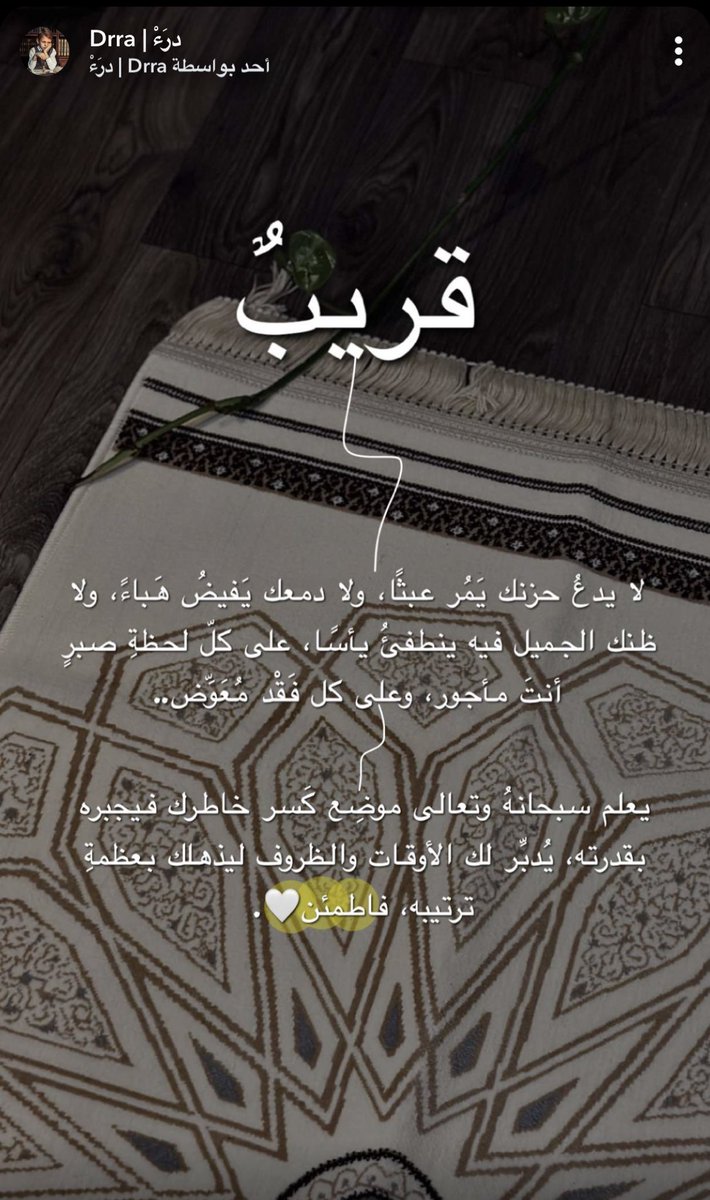 Drra | درَءْ
أحد بواسطة Drra | درَءْ
قريبٌ
لا يدعُ حزنك يَمُر عبثًا، ولا دمعك يَفيضُ هَباءً، ولا
ظنك الجميل فيه ينطفئُ يأسًا، على كلّ لحظةِ صبرٍ
أنتَ مأجور، وعلى كل فَقْد مُعَوّض..
يعلم سبحانهُ وتعالى موضِع كَسر خاطرك فيجبره
بقدرته، يُدبِّر لك الأوقات والظروف ليذهلك بعظمةِ
ترتيبه، فاطمئن🤍.